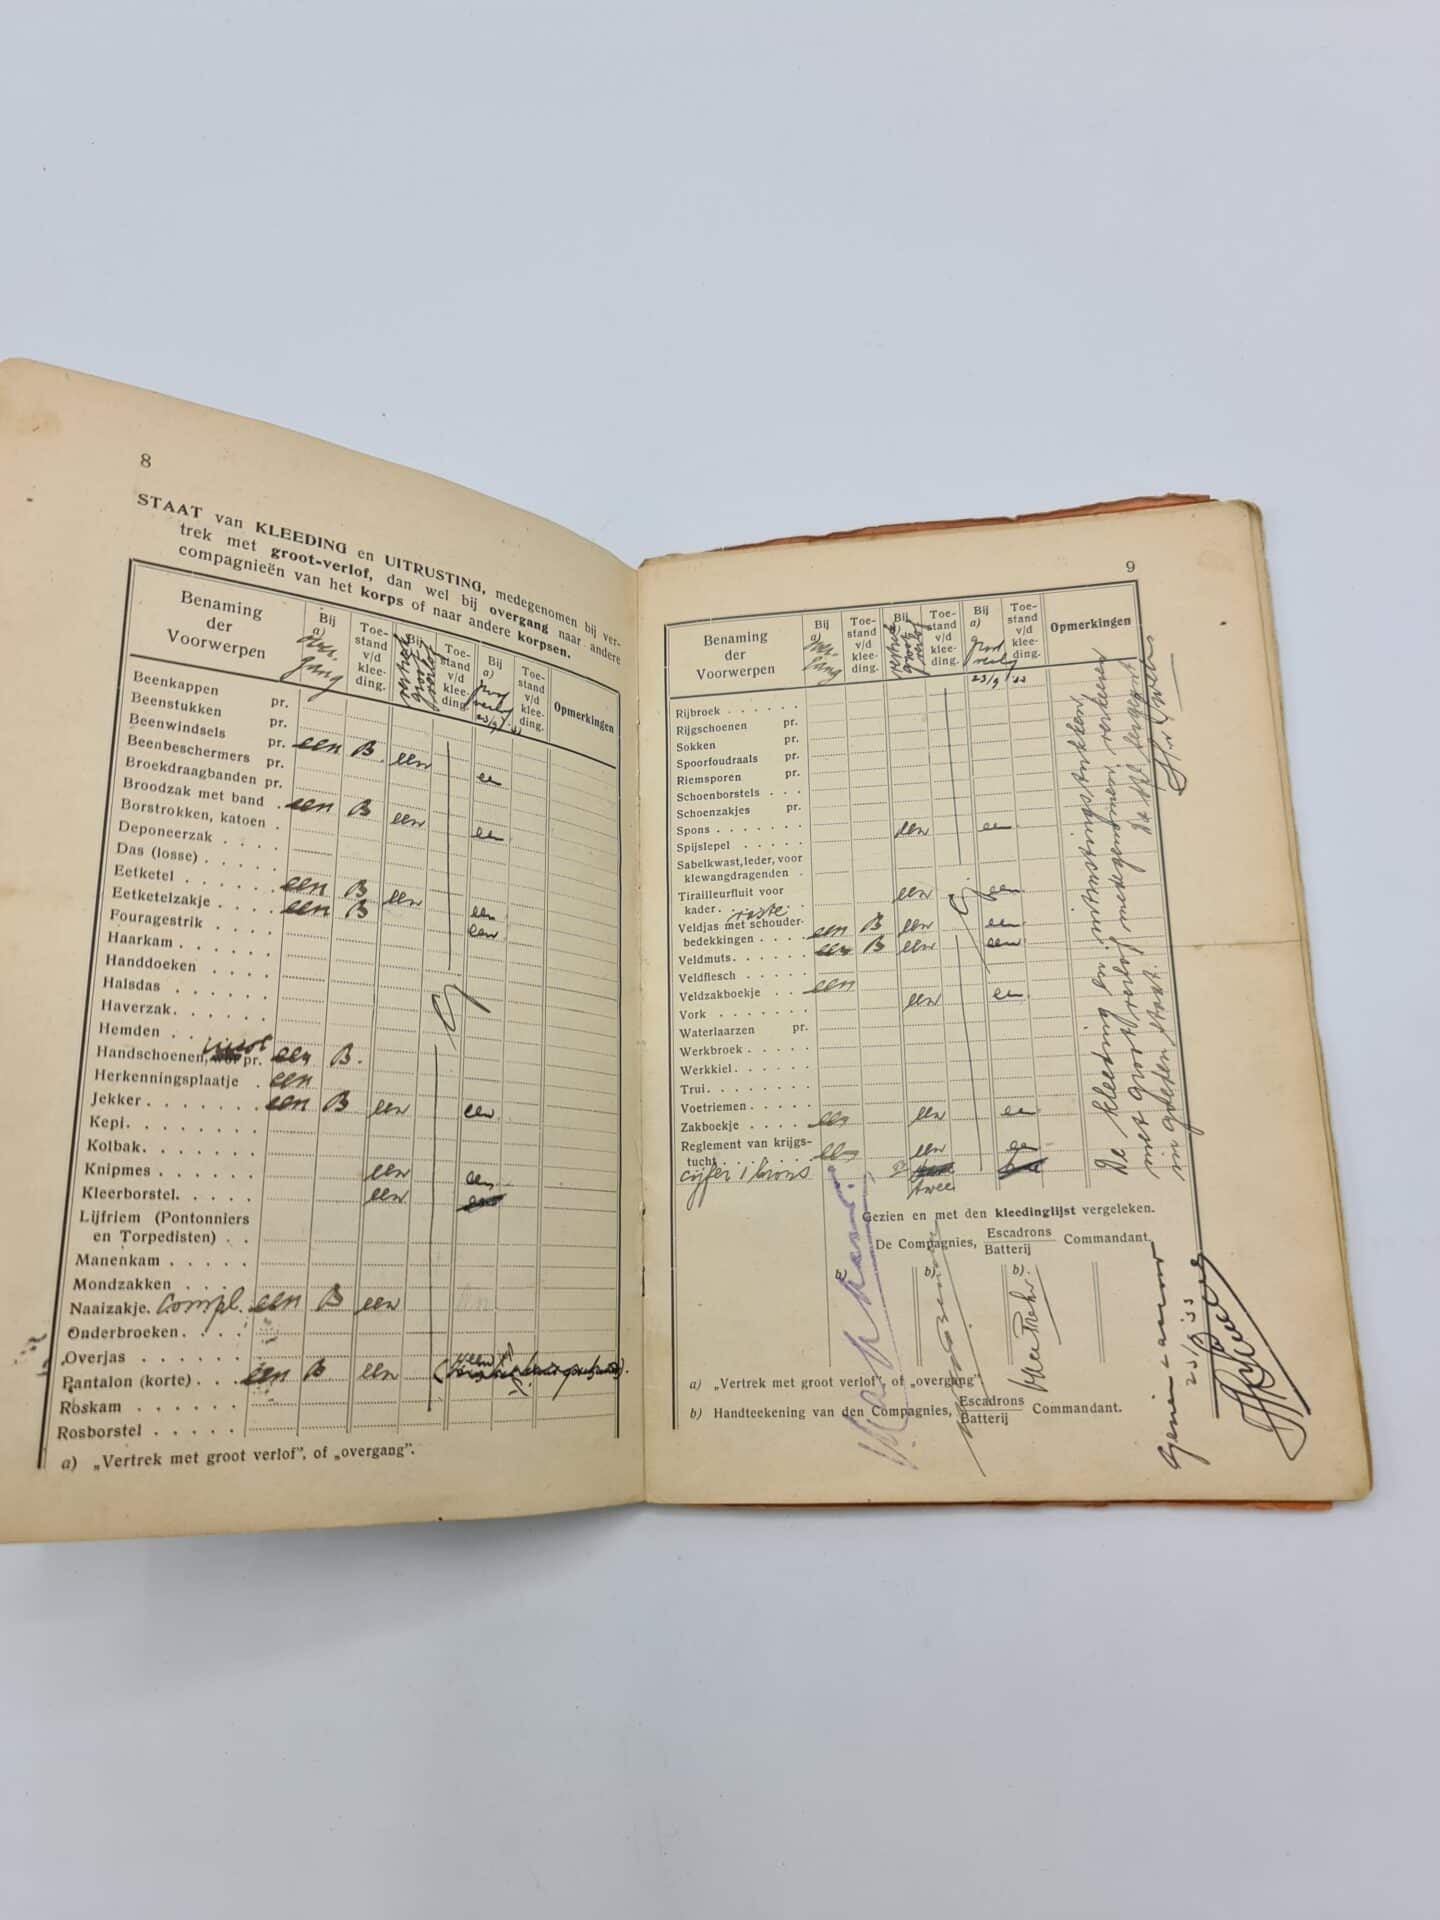 8
STAAT van KLEEDING en UITRUSTING, medegenomen bij ver-
trek met groot-verlof, dan wel bij overgang naar andere
compagnieën van het korps of naar andere korpsen.
Benaming der Voorwerpen
Bij a)
Toe-stand v/d klee-ding.
Bij
groot verlof
Toe-stand v/d klee-ding.
Bij a)
groot verlof 23/9 '33
Toe-stand v/d klee-ding.
Opmerkingen
Beenkappen pr.
Beenstukken pr.
Beenwindsels pr. een B een een
Beenbeschermers pr.
Broekdraagbanden pr.
Broodzak met band . een B een een
Borstrokken, katoen .
Deponeerzak . . . .
Das (losse) . . . .
Eetketel . . . . . . een B een een
Eetketelzakje . . . . een B een
Fouragestrik . . . .
Haarkam . . . . .
Handdoeken . . . .
Halsdas . . . . . .
Haverzak. . . . . .
Hemden . . . . .
Handschoenen, pr. een B.
Herkenningsplaatje . een
Jekker . . . . . . . een B een een
Kepi. . . . . . . .
Kolbak. . . . . . .
Knipmes . . . . . een een
Kleerborstel. . . . . een
Lijfriem (Pontonniers
en Torpedisten) . .
Manenkam . . . . .
Mondzakken . . . .
Naaizakje. compl. een B een
Onderbroeken. . . .
Overjas . . . . . .
Pantalon (korte) . . . een B een
Roskam . . . . . .
Rosborstel . . . . .
a) „Vertrek met groot verlof”, of „overgang”.
9
Benaming der Voorwerpen
Bij a)
Toe-stand v/d klee-ding.
Bij a)
groot verlof
Toe-stand v/d klee-ding.
Bij a)
groot verlof 23/9 '33
Toe-stand v/d klee-ding.
Opmerkingen
Rijbroek . . . . . .
Rijgschoenen pr.
Sokken pr.
Spoorfoudraals pr.
Riemsporen pr.
Schoenborstels . . .
Schoenzakjes pr.
Spons . . . . . . . een een
Spijslepel . . . . .
Sabelkwast, leder, voor
klewangdragenden .
Tirailleurfluit voor
kader. . . . . . . . een een
Veldjas met schouder-
bedekkingen . . . . een B een een
Veldmuts. . . . . . een B een een
Veldflesch . . . . .
Veldzakboekje . . . een
Vork . . . . . . . een een
Waterlaarzen pr.
Werkbroek . . . . .
Werkkiel. . . . . .
Trui. . . . . . . .
Voetriemen . . . . .
Zakboekje . . . . . een een een
Reglement van krijgs-
tucht . . . . . . . een een een
cijfer 1 brons twee
De kleeding en uitrustingstukken,
met groot verlof medegenomen, verkeeren
in goeden staat.
Gezien en met den kleedinglijst vergeleken.
De Compagnies, Escadrons Batterij Commandant,
b) b) b)
a) „Vertrek met groot verlof”, of „overgang”.
b) Handteekening van den Compagnies, Escadrons Batterij Commandant.
23/9 '33